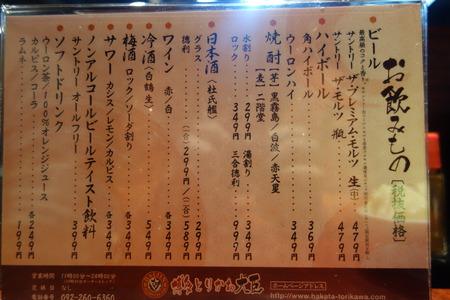 お飲みもの [税抜価格]
ビール
最高級のコクと香り
サントリー ザ・プレミアム・モルツ 生(中) 479円
サントリー ザ・モルツ 瓶 479円
ハイボール
角ハイボール 369円
ウーロンハイ 349円
焼酎 [芋] 黒霧島/白波/赤天星
[麦] 二階堂
水割り 299円 湯割り 299円
ロック 349円 三合徳利
日本酒 (杜氏鑑)
グラス 299円
徳利 (一合) 299円/(二合) 589円
ワイン 赤/白
冷酒 (白鶴生) 549円
梅酒 ロック/ソーダ割り 各349円
サワー カシス/レモン/カルピス 各349円
ノンアルコールビールテイスト飲料
サントリー オールフリー 399円
ソフトドリンク
ウーロン茶/100%オレンジジュース
カルピス/コーラ 各249円
ラムネ 199円
営業時間 11時00分〜24時00分
定休日 なし
電話番号 092-260-6360
博多とりかわ大臣
ホームページアドレス
http://www.hakata-torikawa.com